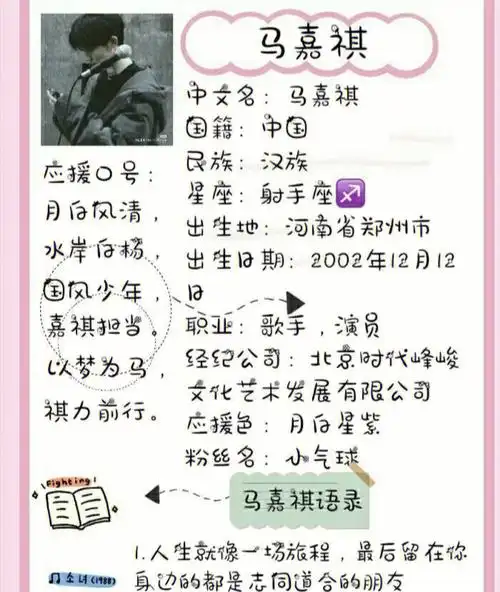 马嘉祺
中文名：马嘉祺
国籍：中国
民族：汉族
星座：射手座
出生地：河南省郑州市
出生日期：2002年12月12
日
职业：歌手，演员
经纪公司：北京时代峰峻
文化艺术发展有限公司
应援色：月白星紫
粉丝名：小气球
应援口号：
月白风清，
水岸白杨，
国风少年，
嘉祺担当。
以梦为马，
祺力前行。
Fighting!
马嘉祺语录
1.人生就像一场旅程，最后留在你
身边的都是志同道合的朋友
少女(1988)